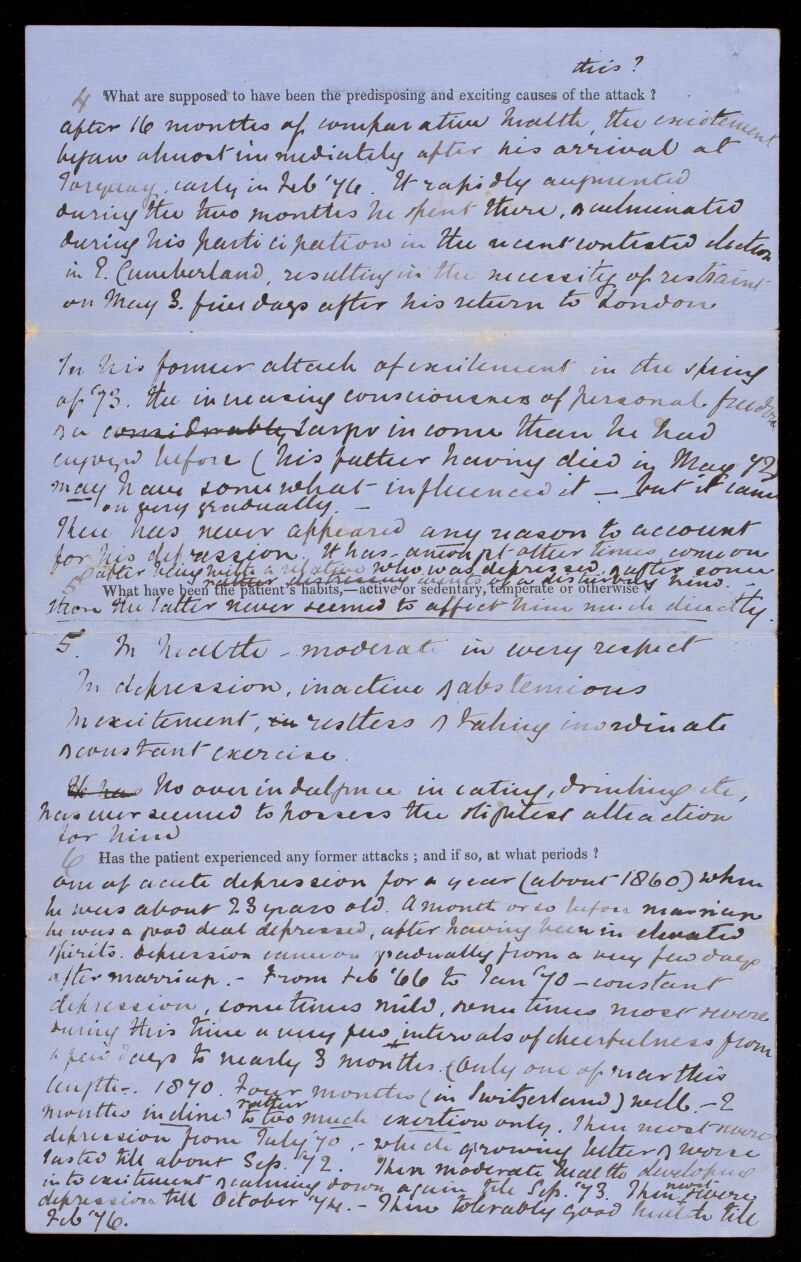 this?
4 What are supposed to have been the predisposing and exciting causes of the attack ?
after 16 months of comparative health, the excitement
began almost immediately after his arrival at
Torquay, early in Feb '76. It rapidly augmented
during the two months he spent there, & culminated
during his participation in the recent contested election
in E. Cumberland, resulting in the necessity of restraint
on May 3. five days after his return to London
In his former attack of excitement in the spring
of '73. the increasing consciousness of personal freedom
& a considerably larger income than he had
enjoyed before (his father having died in May 72)
may have somewhat influenced it – but it came
on very gradually. –
There has never appeared any reason to account
for his depression. It has amongst other times come on
after being with a relative who was depressed, & after some
rather distressing events of a disturbing kind. –
5 What have been the patient's habits,—active or sedentary, temperate or otherwise ?
then the latter never seemed to affect him much directly.
5. In health – moderate in every respect
In depression, inactive & abstemious
In excitement, in restless & taking inordinate
& constant exercise.
It has No over indulgence in eating, drinking etc,
has ever seemed to possess the slightest attraction
for him
6 Has the patient experienced any former attacks ; and if so, at what periods ?
one of acute depression for a year (about 1860) when
he was about 23 years old. A month or so before marriage
he was a good deal depressed, after having been in elevated
spirits. Depression came on gradually from a very few days
after marriage. – From Feb '66 to Jan '70 – constant
depression, sometimes mild, sometimes most severe
during this time a very few intervals of cheerfulness from
a few days to nearly 3 months. (Only one of near this
length –. 1870. Four months (in Switzerland) well. – 2
months inclined rather to too much exertion only. Then most severe
depression from July '70, – which growing better & worse
lasted till about Sep. '72. Then moderate health developing
into excitement & calming down again till Sep. '73. Then most severe
depression till October '74. – Then tolerably good health till
Feb '76.